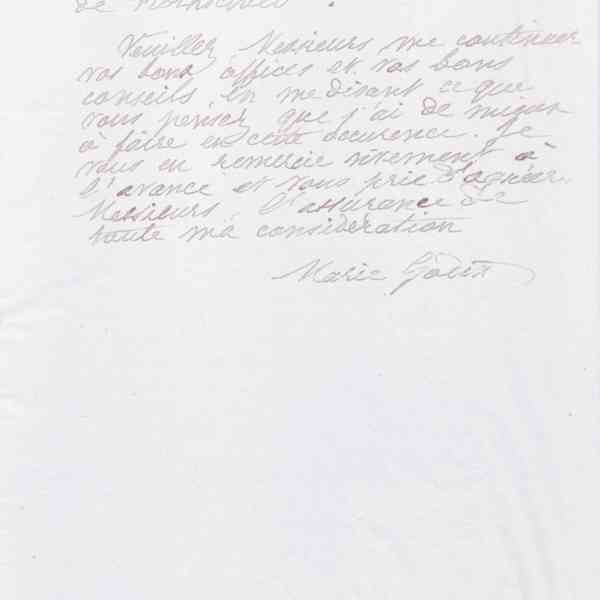 de Rothschild.
Veuillez Messieurs me continuer
vos bons offices et vos bons
conseils, en me disant ce que
vous pensez que j'ai de mieux
à faire en cette occurence. Je
vous en remercie vivement à
l'avance et vous prie d'agréer,
Messieurs, l'assurance de
toute ma considération
Marie